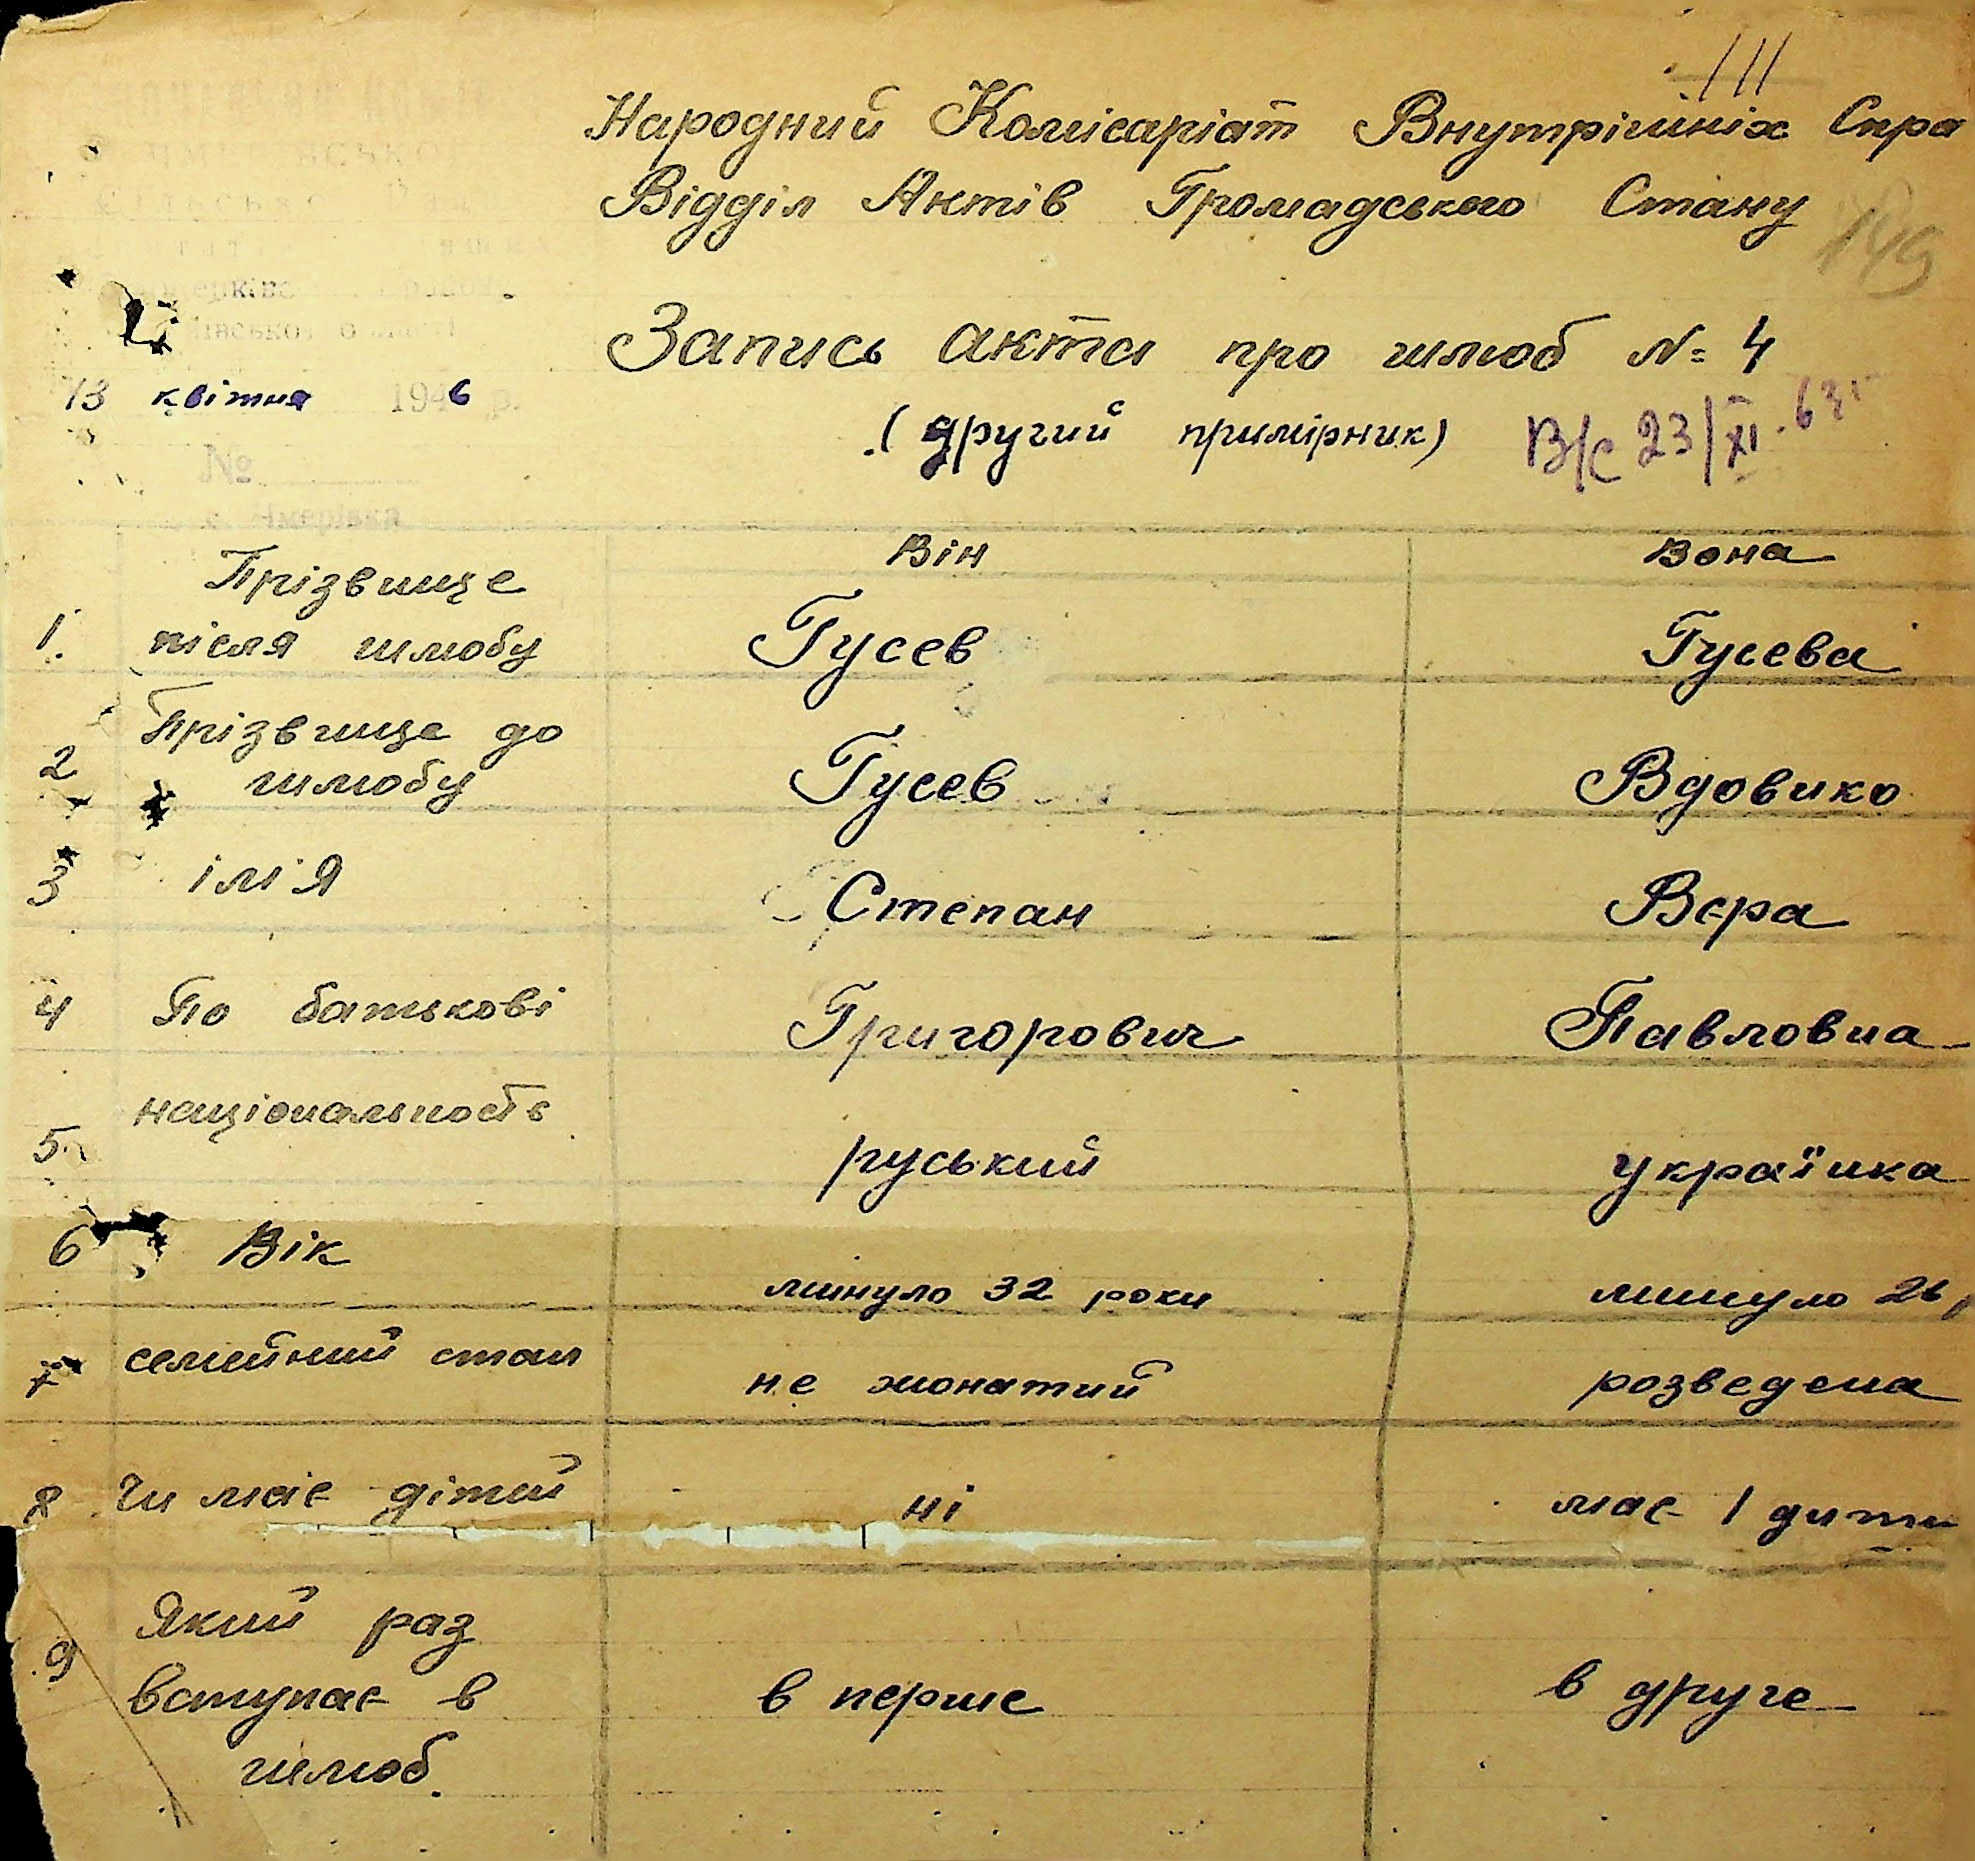 111
Народний Комісаріат Внутрішніх Спра
Відділ Актів Громадського Стану
149
Запись акта про шлюб № 4
13 квітня 1946 р.
(другий примірник) В/с 23/XI.63г
№
Він Вона
1. Прізвище
після шлюбу Гусев Гусева
2 Прізвище до
шлюбу Гусев Вдовико
3 імія Степан Вера
4 По батькові Григорович Павловна
5. національность руський українка
6 Вік минуло 32 роки минуло 26 р
7 семейний стан не жонатий розведена
8 Чи має дітий ні має 1 дити
9 Який раз
вступає в в перше в друге
шлюб.